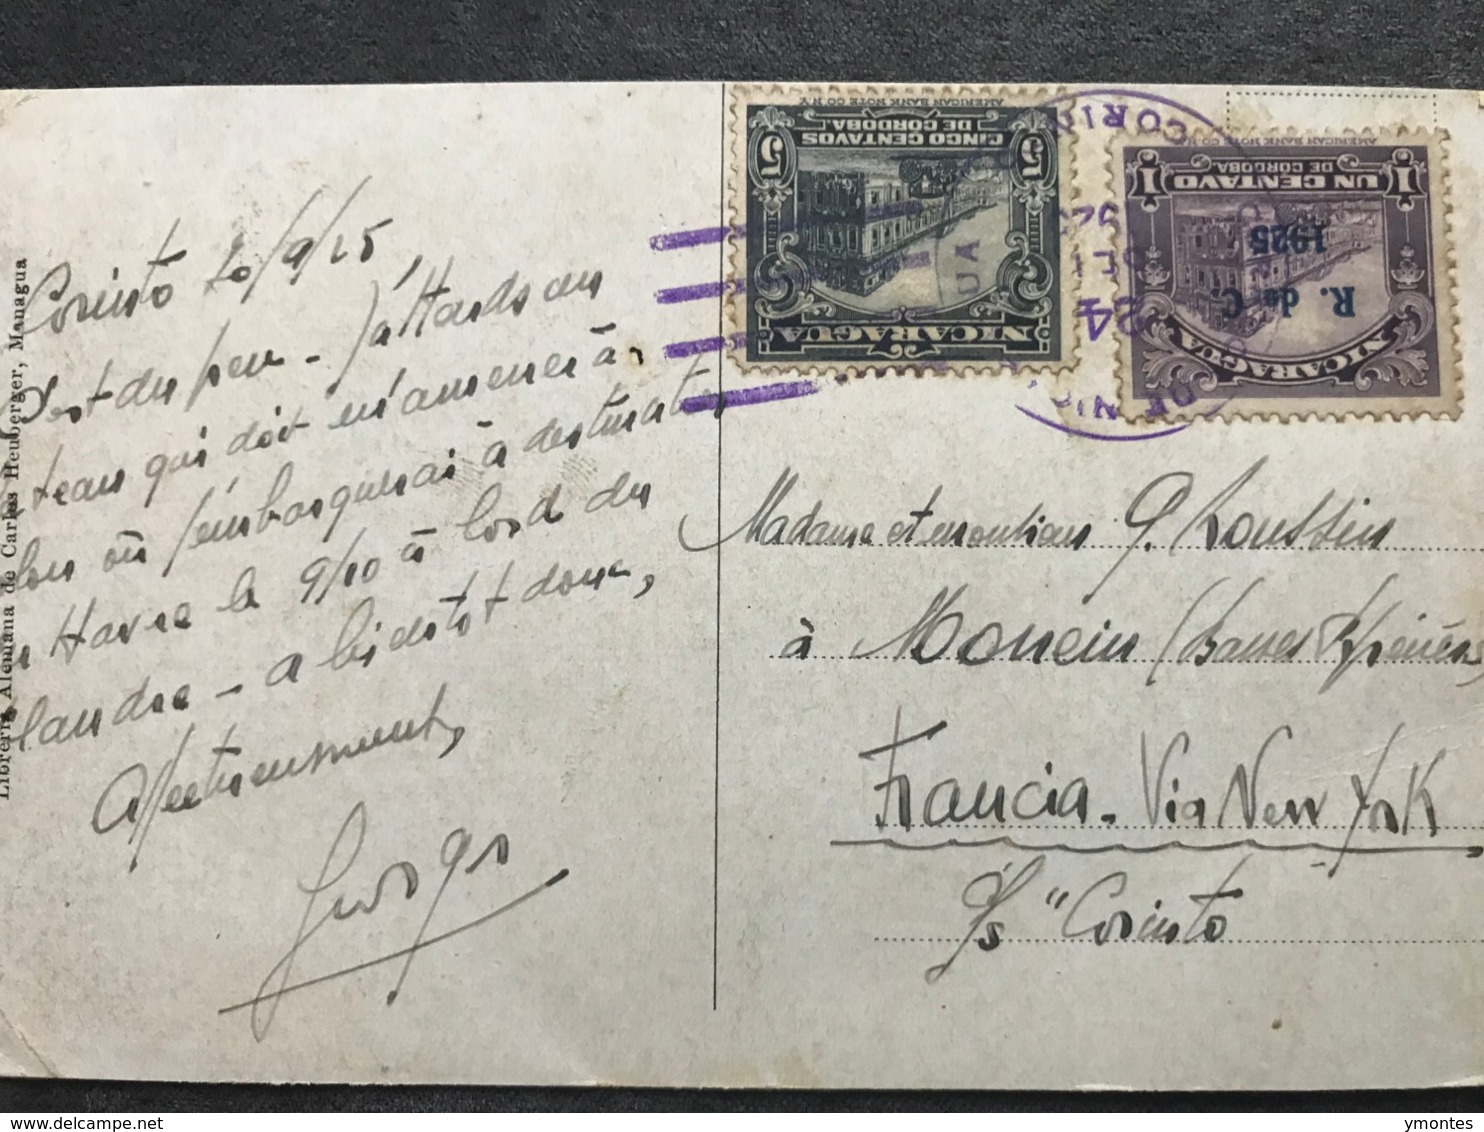 Corinto 20/9/25
C'est du peu - J'attends un
steam qui doit m'amener à
lon où j'embarquerai à destination
du Havre le 9/10 à bord du
landre - a bientôt donc,
Affectueusement,
Georges
Librería Alemana de Carlos Heuberger, Managua
AMERICAN BANK NOTE CO. N.Y.
CINCO CENTAVOS
DE CORDOBA.
5 5
NICARAGUA
AMERICAN BANK NOTE CO. N.Y.
UN CENTAVO
DE CORDOBA
1 1
1925
R. de C.
NICARAGUA
CORIN
24
DE NIC
UA
Madame et monsieur G. Roussin
à Monein (Basses Pyrénées)
Francia - Via New York
P/s "Corinto
ymontes